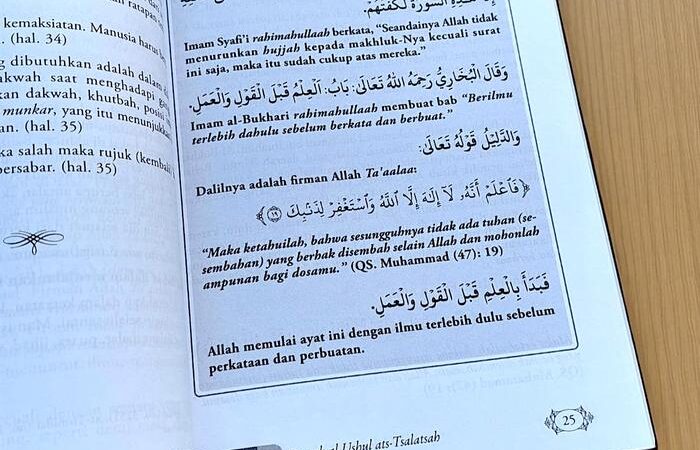 ratapan
kemaksiatan. Manusia harus
(hal. 34)
dibutuhkan adalah dalam
dakwah saat menghadapi
kan dakwah, khutbah, posisi
munkar, yang itu menunjukkan
an. (hal. 35)
ka salah maka rujuk (kembali
bersabar. (hal. 35)
السُّورَةُ لَكَفَتْهُمْ.
Imam Syafi'i rahimahullaah berkata, “Seandainya Allah tidak
menurunkan hujjah kepada makhluk-Nya kecuali surat
ini saja, maka itu sudah cukup atas mereka.”
وَقَالَ الْبُخَارِيُّ رَحِمَهُ اللهُ تَعَالَى: بَابُ: اَلْعِلْمُ قَبْلَ الْقَوْلِ وَالْعَمَلِ.
Imam al-Bukhari rahimahullaah membuat bab “Berilmu
terlebih dahulu sebelum berkata dan berbuat.”
وَالدَّلِيْلُ قَوْلُهُ تَعَالَى:
Dalilnya adalah firman Allah Ta'aalaa:
﴿فَٱعْلَمْ أَنَّهُۥ لَآ إِلَٰهَ إِلَّا ٱللَّهُ وَٱسْتَغْفِرْ لِذَنۢبِكَ ۝١٩﴾
“Maka ketahuilah, bahwa sesungguhnya tidak ada tuhan (se-
sembahan) yang berhak disembah selain Allah dan mohonlah
ampunan bagi dosamu.” (QS. Muhammad (47): 19)
فَبَدَأَ بِالْعِلْمِ قَبْلَ الْقَوْلِ وَالْعَمَلِ.
Allah memulai ayat ini dengan ilmu terlebih dulu sebelum
perkataan dan perbuatan.
al Ushul ats-Tsalatsah
25